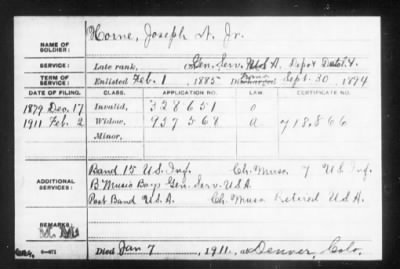 NAME OF SOLDIER: Horne, Joseph A. Jr.
SERVICE: Late rank, Gen. Serv. U.S.A. Depot
TERM OF SERVICE: Enlisted Feb. 1, 1885 Sept. 30, 1894
DATE OF FILING. CLASS. APPLICATION NO. CERTIFICATE NO.
1879 Dec. 17 Invalid, 328651
1911 Feb. 2 Widow, 957568 a 718,866
Minor,
ADDITIONAL SERVICES: Band 15 U.S. Inf. Ch. Musc. 7 U.S. Inf.
B Music Boys Gen. Serv. U.S.A.
Post Band U.S.A. Ch. Musc Retired U.S.A.
REMARKS:
Died Jan 7, 1911, at Denver, Colo.